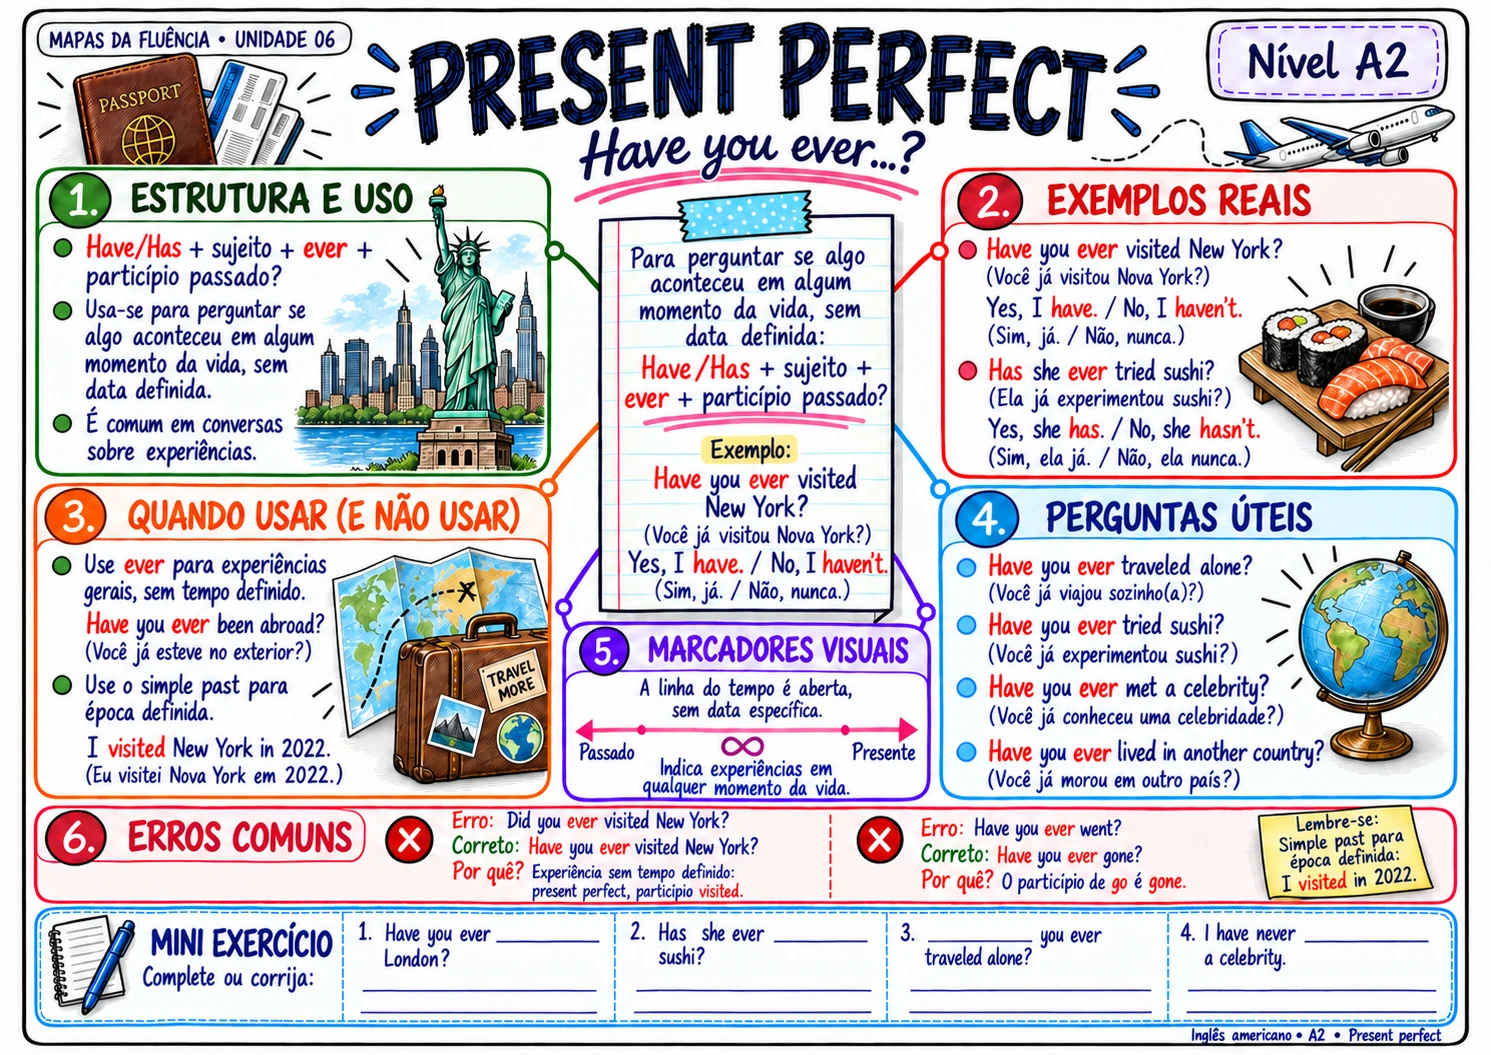 MAPAS DA FLUÊNCIA • UNIDADE 06
PRESENT PERFECT
Have you ever...?
Nível A2
PASSPORT
1. ESTRUTURA E USO
Have/Has + sujeito + ever +
particípio passado?
Usa-se para perguntar se
algo aconteceu em algum
momento da vida, sem
data definida.
É comum em conversas
sobre experiências.
Para perguntar se algo
aconteceu em algum
momento da vida, sem
data definida:
Have/Has + sujeito +
ever + particípio passado?
Exemplo:
Have you ever visited
New York?
(Você já visitou Nova York?)
Yes, I have. / No, I haven't.
(Sim, já. / Não, nunca.)
2. EXEMPLOS REAIS
Have you ever visited New York?
(Você já visitou Nova York?)
Yes, I have. / No, I haven't.
(Sim, já. / Não, nunca.)
Has she ever tried sushi?
(Ela já experimentou sushi?)
Yes, she has. / No, she hasn't.
(Sim, ela já. / Não, ela nunca.)
3. QUANDO USAR (E NÃO USAR)
Use ever para experiências
gerais, sem tempo definido.
Have you ever been abroad?
(Você já esteve no exterior?)
Use o simple past para
época definida.
I visited New York in 2022.
(Eu visitei Nova York em 2022.)
TRAVEL
MORE
4. PERGUNTAS ÚTEIS
Have you ever traveled alone?
(Você já viajou sozinho(a)?)
Have you ever tried sushi?
(Você já experimentou sushi?)
Have you ever met a celebrity?
(Você já conheceu uma celebridade?)
Have you ever lived in another country?
(Você já morou em outro país?)
5. MARCADORES VISUAIS
A linha do tempo é aberta,
sem data específica.
Passado ∞ Presente
Indica experiências em
qualquer momento da vida.
6. ERROS COMUNS
Erro: Did you ever visited New York?
Correto: Have you ever visited New York?
Por quê? Experiência sem tempo definido:
present perfect, particípio visited.
Erro: Have you ever went?
Correto: Have you ever gone?
Por quê? O particípio de go é gone.
Lembre-se:
Simple past para
época definida:
I visited in 2022.
MINI EXERCÍCIO
Complete ou corrija:
1. Have you ever __________
London?
2. Has she ever __________
sushi?
3. __________ you ever
traveled alone?
4. I have never __________
a celebrity.
Inglês americano • A2 • Present perfect